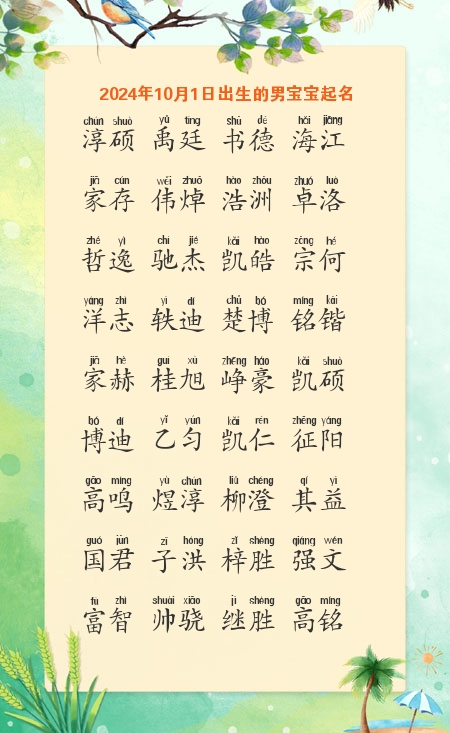 2024年10月1日出生的男宝宝起名
chún shuò yǔ tíng shū dé hǎi jiāng
淳硕 禹廷 书德 海江
jiā cún wěi zhuō hào zhōu zhuó luò
家存 伟焯 浩洲 卓洛
zhé yì chí jié kǎi hào zōng hé
哲逸 驰杰 凯皓 宗何
yáng zhì yì dí chǔ bó míng kǎi
洋志 轶迪 楚博 铭锴
jiā hè guì xù zhēng háo kǎi shuò
家赫 桂旭 峥豪 凯硕
bó dí yǐ yún kǎi rén zhēng yáng
博迪 乙匀 凯仁 征阳
gāo míng yù chún liǔ chéng qí yì
高鸣 煜淳 柳澄 其益
guó jūn zǐ hóng zǐ shèng qiáng wén
国君 子洪 梓胜 强文
fù zhì shuài xiāo jì shèng gāo míng
富智 帅骁 继胜 高铭